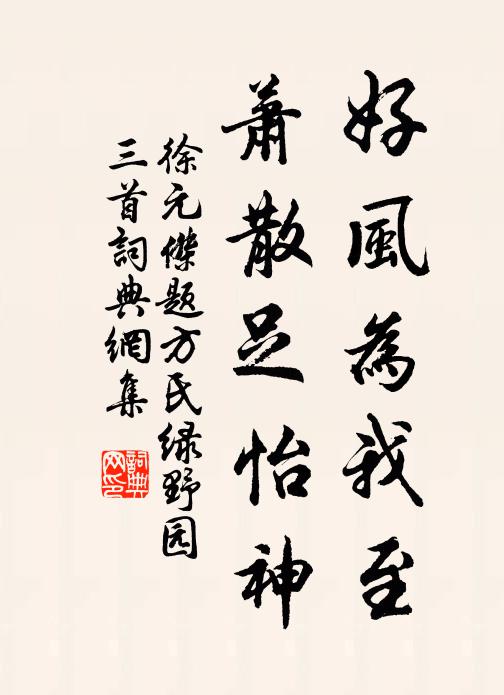 好風為我至
蕭散足怡神
徐元傑題方氏绿野园
三首詞典網集
詞典
网印